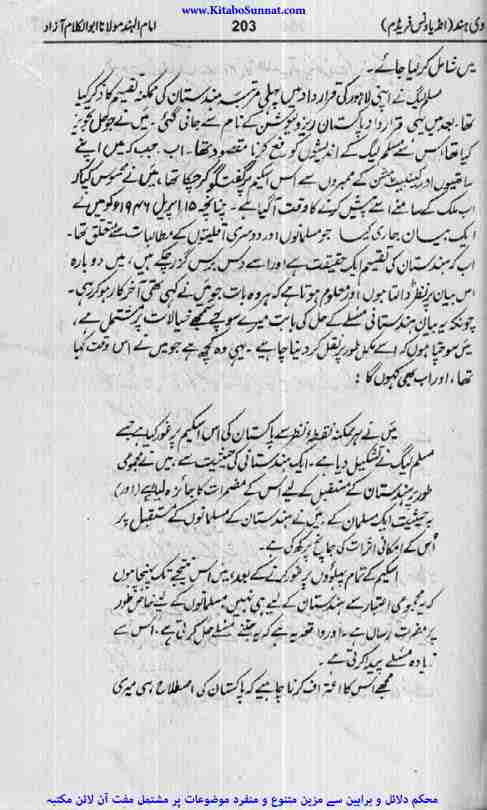 www.KitaboSunnat.com
امام الہند مولانا ابوالکلام آزاد 203 دی ہند (انڈیا ونس فریڈم)
میں شامل کر لیا جائے۔
مسلم لیگ نے اپنی لاہور کی قرارداد میں پہلی مرتبہ ہندستان کی ممکنہ تقسیم کا ذکر کیا
تھا۔ بعد میں یہی قرارداد پاکستان ریزولیوشن کے نام سے جانی گئی۔ میں نے جو حل تجویز
کیا تھا، اس سے مسلم لیگ کے اندیشوں کو رفع کرنا مقصود تھا۔ اب جب کہ میں اپنے
ساتھیوں اور کیبنیٹ مشن کے ممبروں سے اس اسکیم پر گفتگو کر چکا تھا، میں نے محسوس کیا کہ
اب ملک کے سامنے اسے پیش کرنے کا وقت آگیا ہے۔ چنانچہ ۱۵ اپریل ۱۹۴۶ کو میں نے
ایک بیان جاری کیا جو مسلمانوں اور دوسری اقلیتوں کے مطالبات سے متعلق تھا۔
اب کہ ہندستان کی تقسیم ایک حقیقت ہے اور اسے دس برس گزر چکے ہیں، میں دوبارہ
اس بیان پر نظر ڈالتا ہوں اور معلوم ہوتا ہے کہ ہر وہ بات جو میں نے کہی تھی آخر کار ہو کر رہی۔
چونکہ یہ بیان ہندستانی مسئلے کے حل کی بابت میرے سوچے سمجھے خیالات پر مشتمل ہے،
میں سوچتا ہوں کہ اسے مکمل طور پر نقل کر دینا چاہیے۔ یہی وہ کچھ ہے جو میں نے اس وقت کہا
تھا، اور اب بھی کہوں گا :
میں نے ہر ممکنہ نقطۂ نظر سے پاکستان کی اس اسکیم پر غور کیا ہے جسے
مسلم لیگ نے تشکیل دیا ہے۔ ایک ہندستانی کی حیثیت سے، میں نے مجموعی
طور پر ہندستان کے مستقبل کے لیے اس کے مضمرات کا جائزہ لیا ہے (اور)
بہ حیثیت ایک مسلمان کے، میں نے ہندستان کے مسلمانوں کے مستقبل پر
اس کے امکانی اثرات کی جانچ پرکھ کی ہے۔
اسکیم کے تمام پہلوؤں پر غور کرنے کے بعد، میں اس نتیجے تک پہنچا ہوں
کہ یہ مجموعی اعتبار سے ہندستان کے لیے ہی نہیں مسلمانوں کے لیے خاص طور
پر مضرت رساں ہے۔ اور واقعہ یہ ہے کہ یہ جتنے مسئلے حل کرتی ہے، اس سے
زیادہ مسئلے پیدا کرتی ہے۔
مجھے اس کا اعتراف کرنا چاہیے کہ پاکستان کی اصطلاح ہی میری
محکم دلائل و براہین سے مزین متنوع و منفرد موضوعات پر مشتمل مفت آن لائن مکتبہ